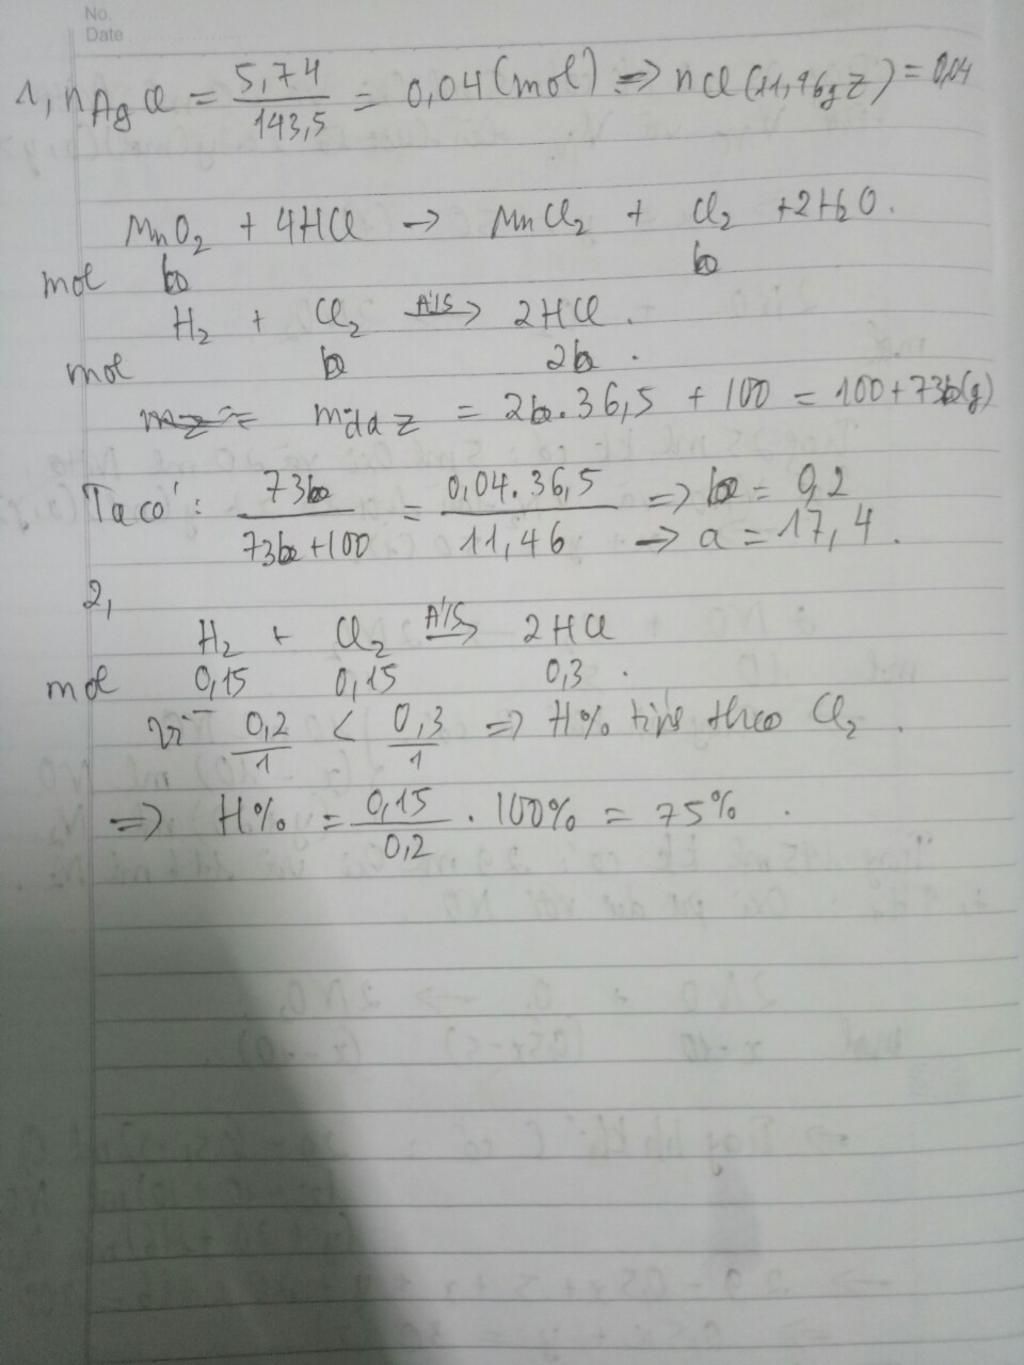 No.
Date
1, nAgCl = 5,74/143,5 = 0,04 (mol) => nCl (11,46g Z) = 0,04
MnO2 + 4HCl → MnCl2 + Cl2 + 2H2O.
mol b b
H2 + Cl2 A/S→ 2HCl.
mol b 2b.
mdd Z = 2b.36,5 + 100 = 100 + 73b(g)
Ta có: 73b/(73b+100) = 0,04.36,5/11,46 => b = 0,2
→ a = 17,4.
2,
H2 + Cl2 A/S→ 2HCl
mol 0,15 0,15 0,3.
Vì 0,2/1 < 0,3/1 => H% tính theo Cl2.
=> H% = 0,15/0,2 . 100% = 75%.